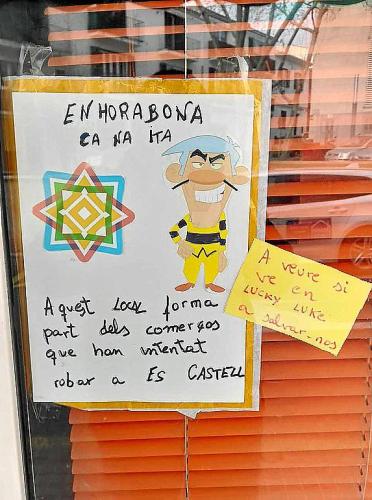 ENHORABONA
CA NA ITA
Aquest LOCAL forma
part dels comerços
que han intentat
robar a ES CASTELL
A veure si
ve en
LUCKY LUKE
a salvar-nos